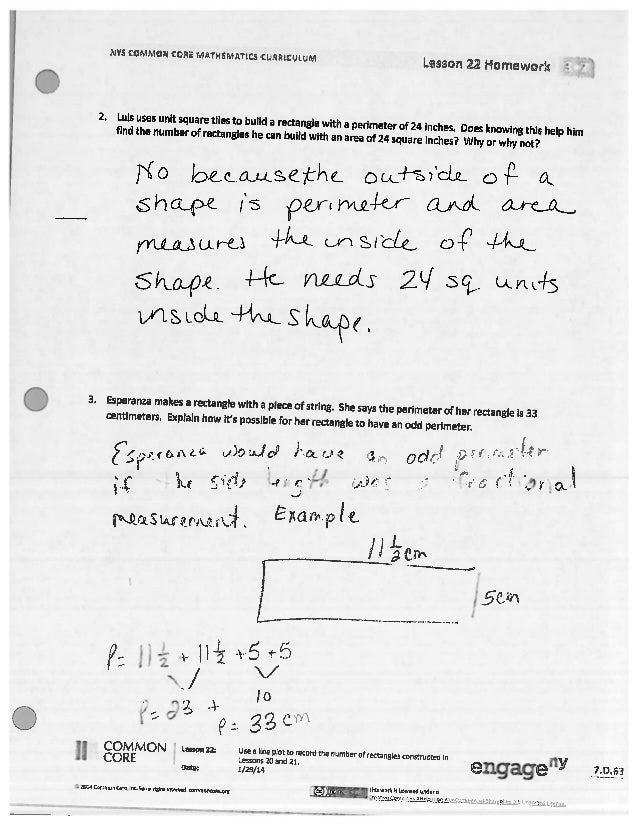 NYS COMMON CORE MATHEMATICS CURRICULUM
Lesson 22 Homework 3•7
2. Luis uses unit square tiles to build a rectangle with a perimeter of 24 inches. Does knowing this help him
find the number of rectangles he can build with an area of 24 square inches? Why or why not?
No because the outside of a
shape is perimeter and area
measures the inside of the
shape. He needs 24 sq. units
inside the shape.
3. Esperanza makes a rectangle with a piece of string. She says the perimeter of her rectangle is 33
centimeters. Explain how it's possible for her rectangle to have an odd perimeter.
Esperanza would have an odd perimeter
if the side length was a fractional
measurement. Example
11 1/2 cm
5cm
P= 11 1/2 + 11 1/2 +5 +5
P= 23 + 10
P= 33 cm
COMMON
CORE
Lesson 22:
Use a line plot to record the number of rectangles constructed in
Lessons 20 and 21.
Date:
1/29/14
engage ny
7.D.63
© 2014 Common Core, Inc. Some rights reserved. commoncore.org
This work is licensed under a